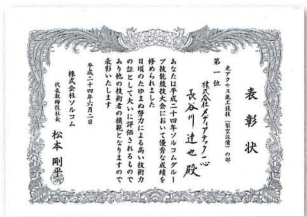 表彰状
光アクセス施工技技(宅営設備)の部
第一位
株式会社メディアテック一心
長谷川達也殿
あなたは平成二十四年ソルコムグルー
プ技能競技大会において優秀な成績を
修められました
日頃のたゆまぬ努力による高い技術力
の証として大いに評価されるもので
あり他の技術者の模範となりますので
表彰いたします
平成二十四年六月二日
株式会社ソルコム
代表取締役社長
松本剛平